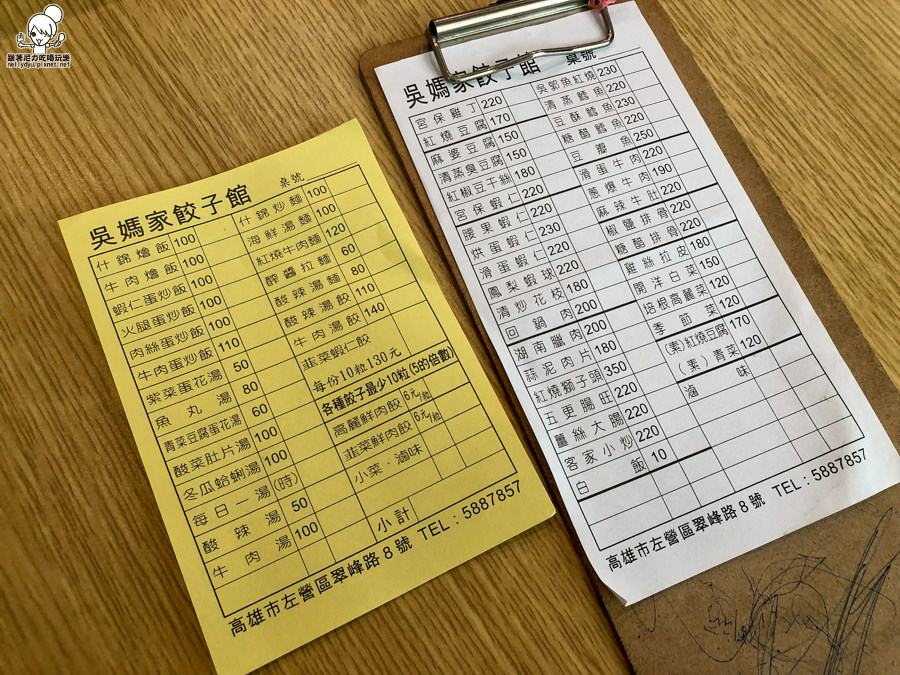 跟著尼力吃喝玩樂
nellydyu.pixnet.net
吳媽家餃子館 桌號
什錦燴飯 100 什錦炒麵 100
牛肉燴飯 100 海鮮湯麵 100
蝦仁蛋炒飯 100 紅燒牛肉麵 120
火腿蛋炒飯 100 醡醬拉麵 60
肉絲蛋炒飯 100 酸辣湯麵 80
牛肉蛋炒飯 110 酸辣湯餃 110
紫菜蛋花湯 50 牛肉湯餃 140
魚丸湯 80 韭菜蝦仁餃
青菜豆腐蛋花湯 60 每份10粒130元
酸菜肚片湯 100 各種餃子最少10粒(5的倍數)
冬瓜蛤蜊湯 100 高麗鮮肉餃 6元/粒
每日一湯(時) 韭菜鮮肉餃 6元/粒
酸辣湯 50 小菜．滷味
牛肉湯 100
小計
高雄市左營區翠峰路8號 TEL：5887857
吳媽家餃子館 桌號
宮保雞丁 220 吳郭魚紅燒 230
紅燒豆腐 170 清蒸鱈魚 220
麻婆豆腐 150 豆酥鱈魚 230
清蒸臭豆腐 150 糖醋鱈魚 220
紅椒豆干絲 180 豆瓣魚 250
宮保蝦仁 220 滑蛋牛肉 220
腰果蝦仁 220 蔥爆牛肉 190
烘蛋蝦仁 230 麻辣牛肚 220
滑蛋蝦仁 220 椒鹽排骨 220
鳳梨蝦球 220 糖醋排骨 220
清炒花枝 180 雞絲拉皮 180
回鍋肉 200 開洋白菜 150
湖南臘肉 200 培根高麗菜 120
蒜泥肉片 180 季節菜 120
紅燒獅子頭 350 (素)紅燒豆腐 170
五更腸旺 220 (素)青菜 120
薑絲大腸 220 滷味
客家小炒 220
白飯 10
高雄市左營區翠峰路8號 TEL：5887857